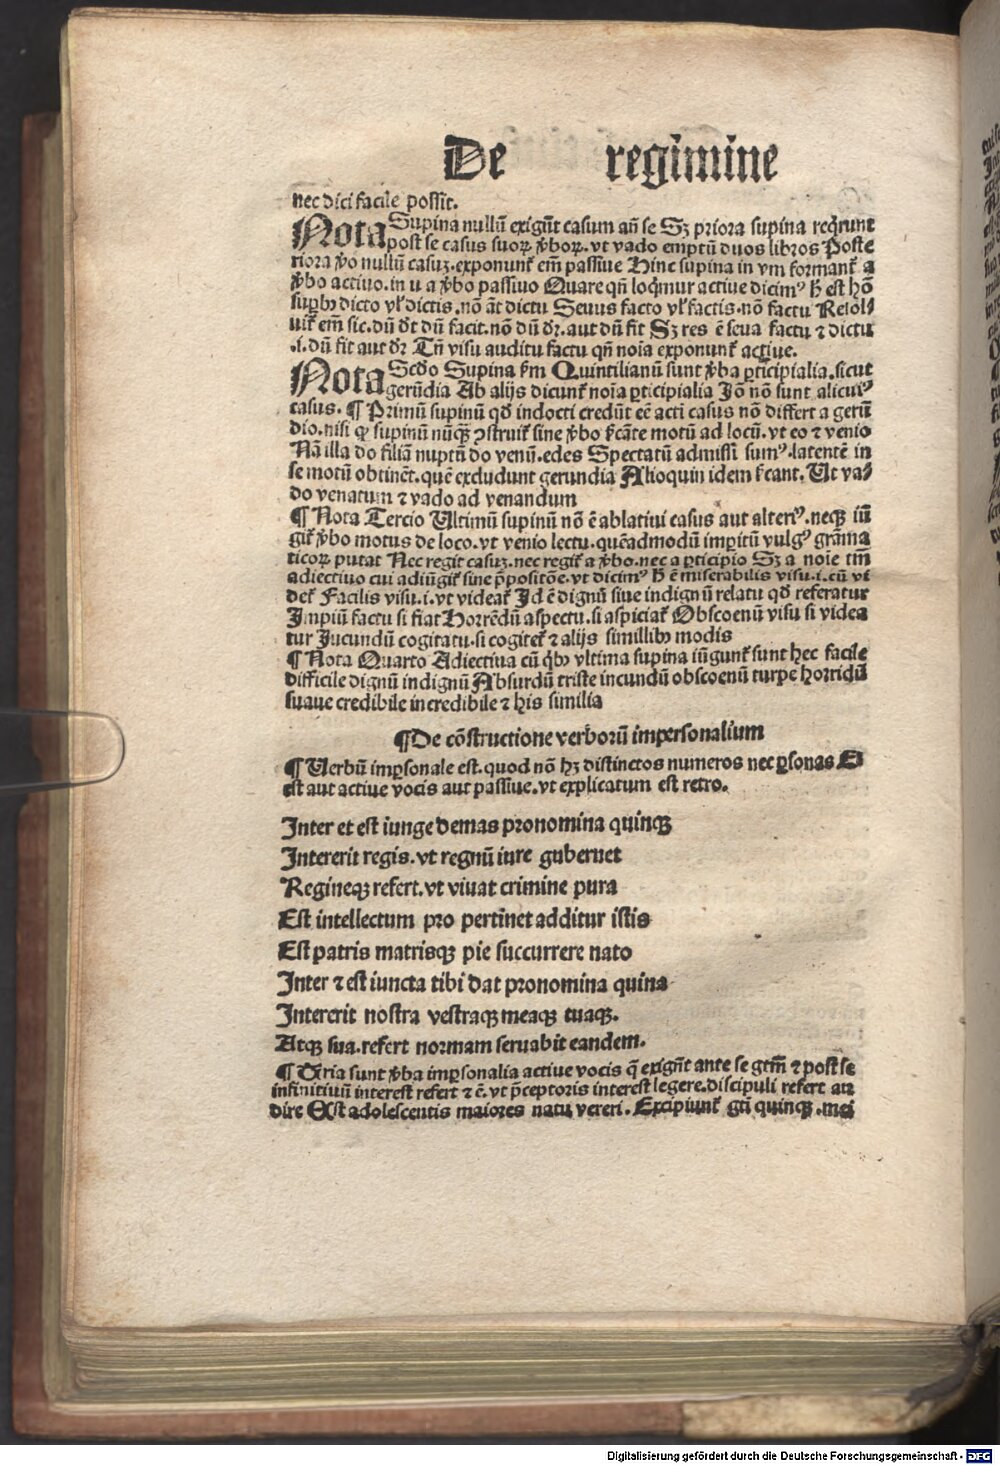 De regimine
nec dici facile possit.
Nota Supina nullū exigūt casum añ se Sꝫ priora supina reqrunt
post se casus suoꝝ ꝟboꝝ. vt vado emptū duos libros Poste
riora ꝟo nullū casuꝫ. exponunt᷑ em̄ passiue Hinc supina in vm formant᷑ a
ꝟbo actiuo. in u a ꝟbo passiuo Quare qñ loqmur actiue dicimꝰ ħ est hō
supbꝰ dicto vl᷑ dictis. nō āt dictu Seuus facto vl᷑ factis. nō factu Resol⸗
uit᷑ em̄ sic. dū dt dū facit. nō dū dr̄. aut dū fit Sꝫ res ē seua factu ⁊ dictu
.i. dū fit aut dr̄ Tn̄ visu auditu factu qñ noīa exponunt᷑ actiue.
Nota Scdo Supina ẜm Quintilianū sunt ꝟba ꝑticipialia. sicut
gerūdia Ab alijs dicunt᷑ noīa ꝑticipialia Iō nō sunt alicuiꝰ
casus. ¶ Primū supinū qd indocti credūt eē acti casus nō differt a gerū
dio. nisi qꝛ supinū nūqꝫ ꝯstruit᷑ sine ꝟbo ẜcāte motū ad locū. vt eo ⁊ venio
Nā illa do filiā nuptū do venū. edes Spectatū admissi sumꝰ. latentē in
se motū obtinēt. quē excludunt gerundia Alioquin idem ẜcant. Ut va⸗
do venatum ⁊ vado ad venandum
¶ Nota Tercio Ultimū supinū nō ē ablatiui casus aut alteriꝰ. neqꝫ iū
git᷑ ꝟbo motus de loco. vt venio lectu. quēadmodū imperitū vulgꝰ grāma
ticoꝝ putat Nec regit casuꝫ. nec regit᷑ a ꝟbo. nec a ꝑticipio Sꝫ a noīe tm̄
adiectiuo cui adiūgit᷑ sine p̄positōe. vt dicimꝰ ħ ē miserabilis visu. i. cū vi
det᷑ Facilis visu. i. vt videat᷑ Id ē dignū siue indignū relatu qd referatur
Impiū factu si fiat Horrēdū aspectu. si aspiciat᷑ Obscoenū visu si videa
tur Jucundū cogitatu. si cogitet᷑ ⁊ alijs simillibꝰ modis
¶ Nota Quarto Adiectiua cū qbꝰ vltima supina iūgunt᷑ sunt hec facile
difficile dignū indignū Absurdū triste iucundū obscoenū turpe horridū
suaue credibile incredibile ⁊ his similia
¶ De cōstructione verborū impersonalium
¶ Uerbū impsonale est. quod nō hꝫ distinctos numeros nec ꝑsonas Et
est aut actiue vocis aut passiue. vt explicatum est retro.
Inter et est iunge demas pronomina quinqꝫ
Intererit regis. vt regnū iure gubernet
Regineqꝫ refert. vt viuat crimine pura
Est intellectum pro pertinet additur istis
Est patris matrisqꝫ pie succurrere nato
Inter ⁊ est iuncta tibi dat pronomina quina
Intererit nostra vestraqꝫ meaqꝫ tuaqꝫ.
Atqꝫ sua. refert normam seruabit eandem.
¶ Tria sunt ꝟba impsonalia actiue vocis q̄ exigūt ante se gtm̄ ⁊ post se
infinitiuū interest refert ⁊ ē. vt p̄ceptoris interest legere. discipuli refert au
dire Est adolescentis maiores natu vereri. Excipiunt᷑ gti quinqꝫ. mei
Digitalisierung gefördert durch die Deutsche Forschungsgemeinschaft - DFG